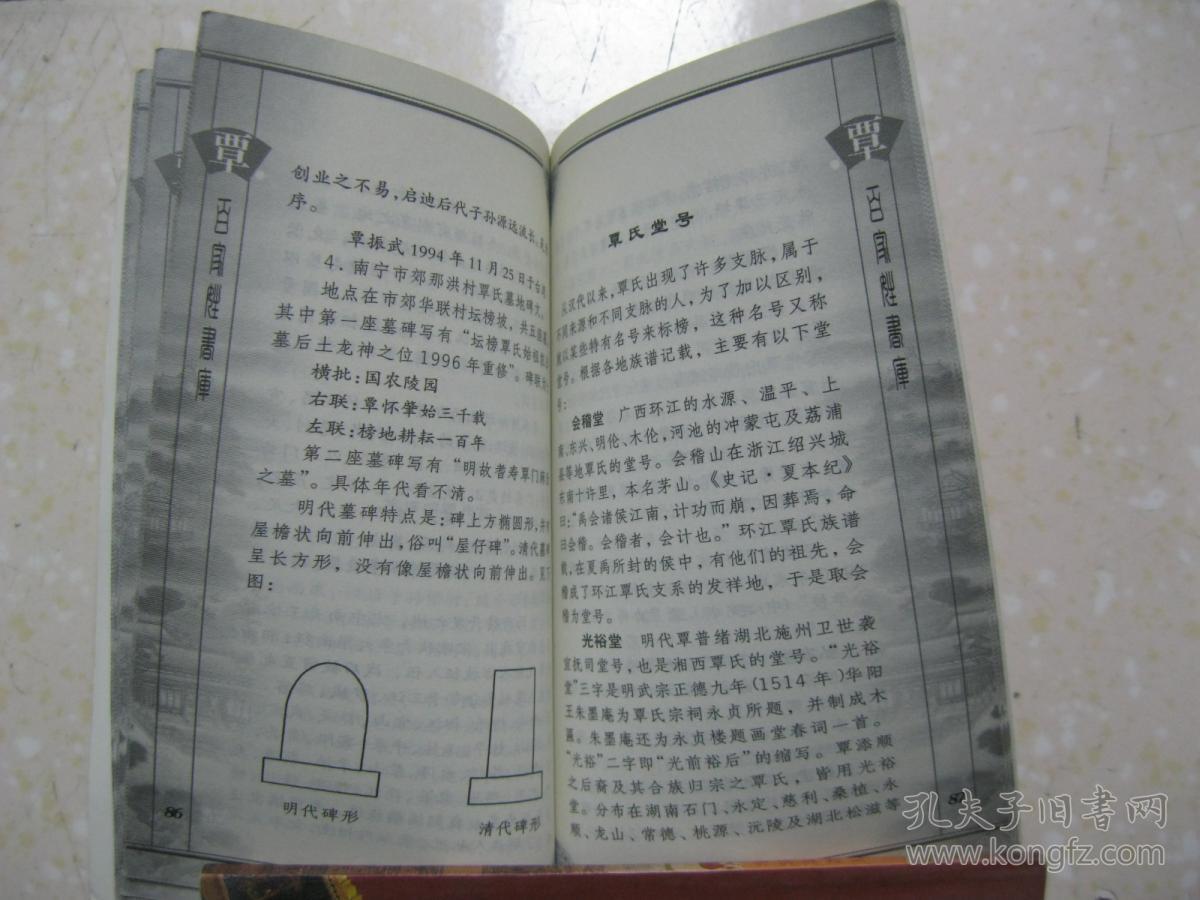 覃
百家姓書庫
创业之不易，启迪后代子孙源远流长。
序。
覃振武1994年11月25日于
4．南宁市郊那洪村覃氏墓地碑文
地点在市郊华联村坛榜坡，共五座
其中第一座墓碑写有“坛榜覃氏始祖
墓后土龙神之位1996年重修”。碑联
横批：国农陵园
右联：覃怀肇始三千载
左联：榜地耕耘一百年
第二座墓碑写有“明故耆寿覃门
之墓”。具体年代看不清。
明代墓碑特点是：碑上方椭圆形，
屋檐状向前伸出，俗叫“屋仔碑”。清代墓
呈长方形，没有像屋檐状向前伸出。
图：
明代碑形
清代碑形
86
覃
百家姓書庫
覃氏堂号
从汉代以来，覃氏出现了许多支脉，属于
不同来源和不同支脉的人，为了加以区别，
就以某些特有名号来标榜，这种名号又称
堂号。根据各地族谱记载，主要有以下堂
号：
会稽堂 广西环江的水源、温平、上
南、东兴、明伦、木伦，河池的冲蒙屯及荔浦
等地覃氏的堂号。会稽山在浙江绍兴城
东南十许里，本名茅山。《史记·夏本纪》
曰：“禹会诸侯江南，计功而崩，因葬焉，命
曰会稽。会稽者，会计也。”环江覃氏族谱
载，在夏禹所封的侯中，有他们的祖先，会
稽成了环江覃氏支系的发祥地，于是取会
稽为堂号。
光裕堂 明代覃普绪湖北施州卫世袭
宣抚司堂号，也是湘西覃氏的堂号。“光裕
堂”三字是明武宗正德九年(1514年)华阳
王朱墨庵为覃氏宗祠永贞所题，并制成木
匾。朱墨庵还为永贞楼题画堂春词一首。
“光裕”二字即“光前裕后”的缩写。覃添顺
之后裔及其合族归宗之覃氏，皆用光裕
堂。分布在湖南石门、永定、慈利、桑植、永
顺、龙山、常德、桃源、沅陵及湖北松滋等
87
孔夫子旧书网
www.kongfz.com